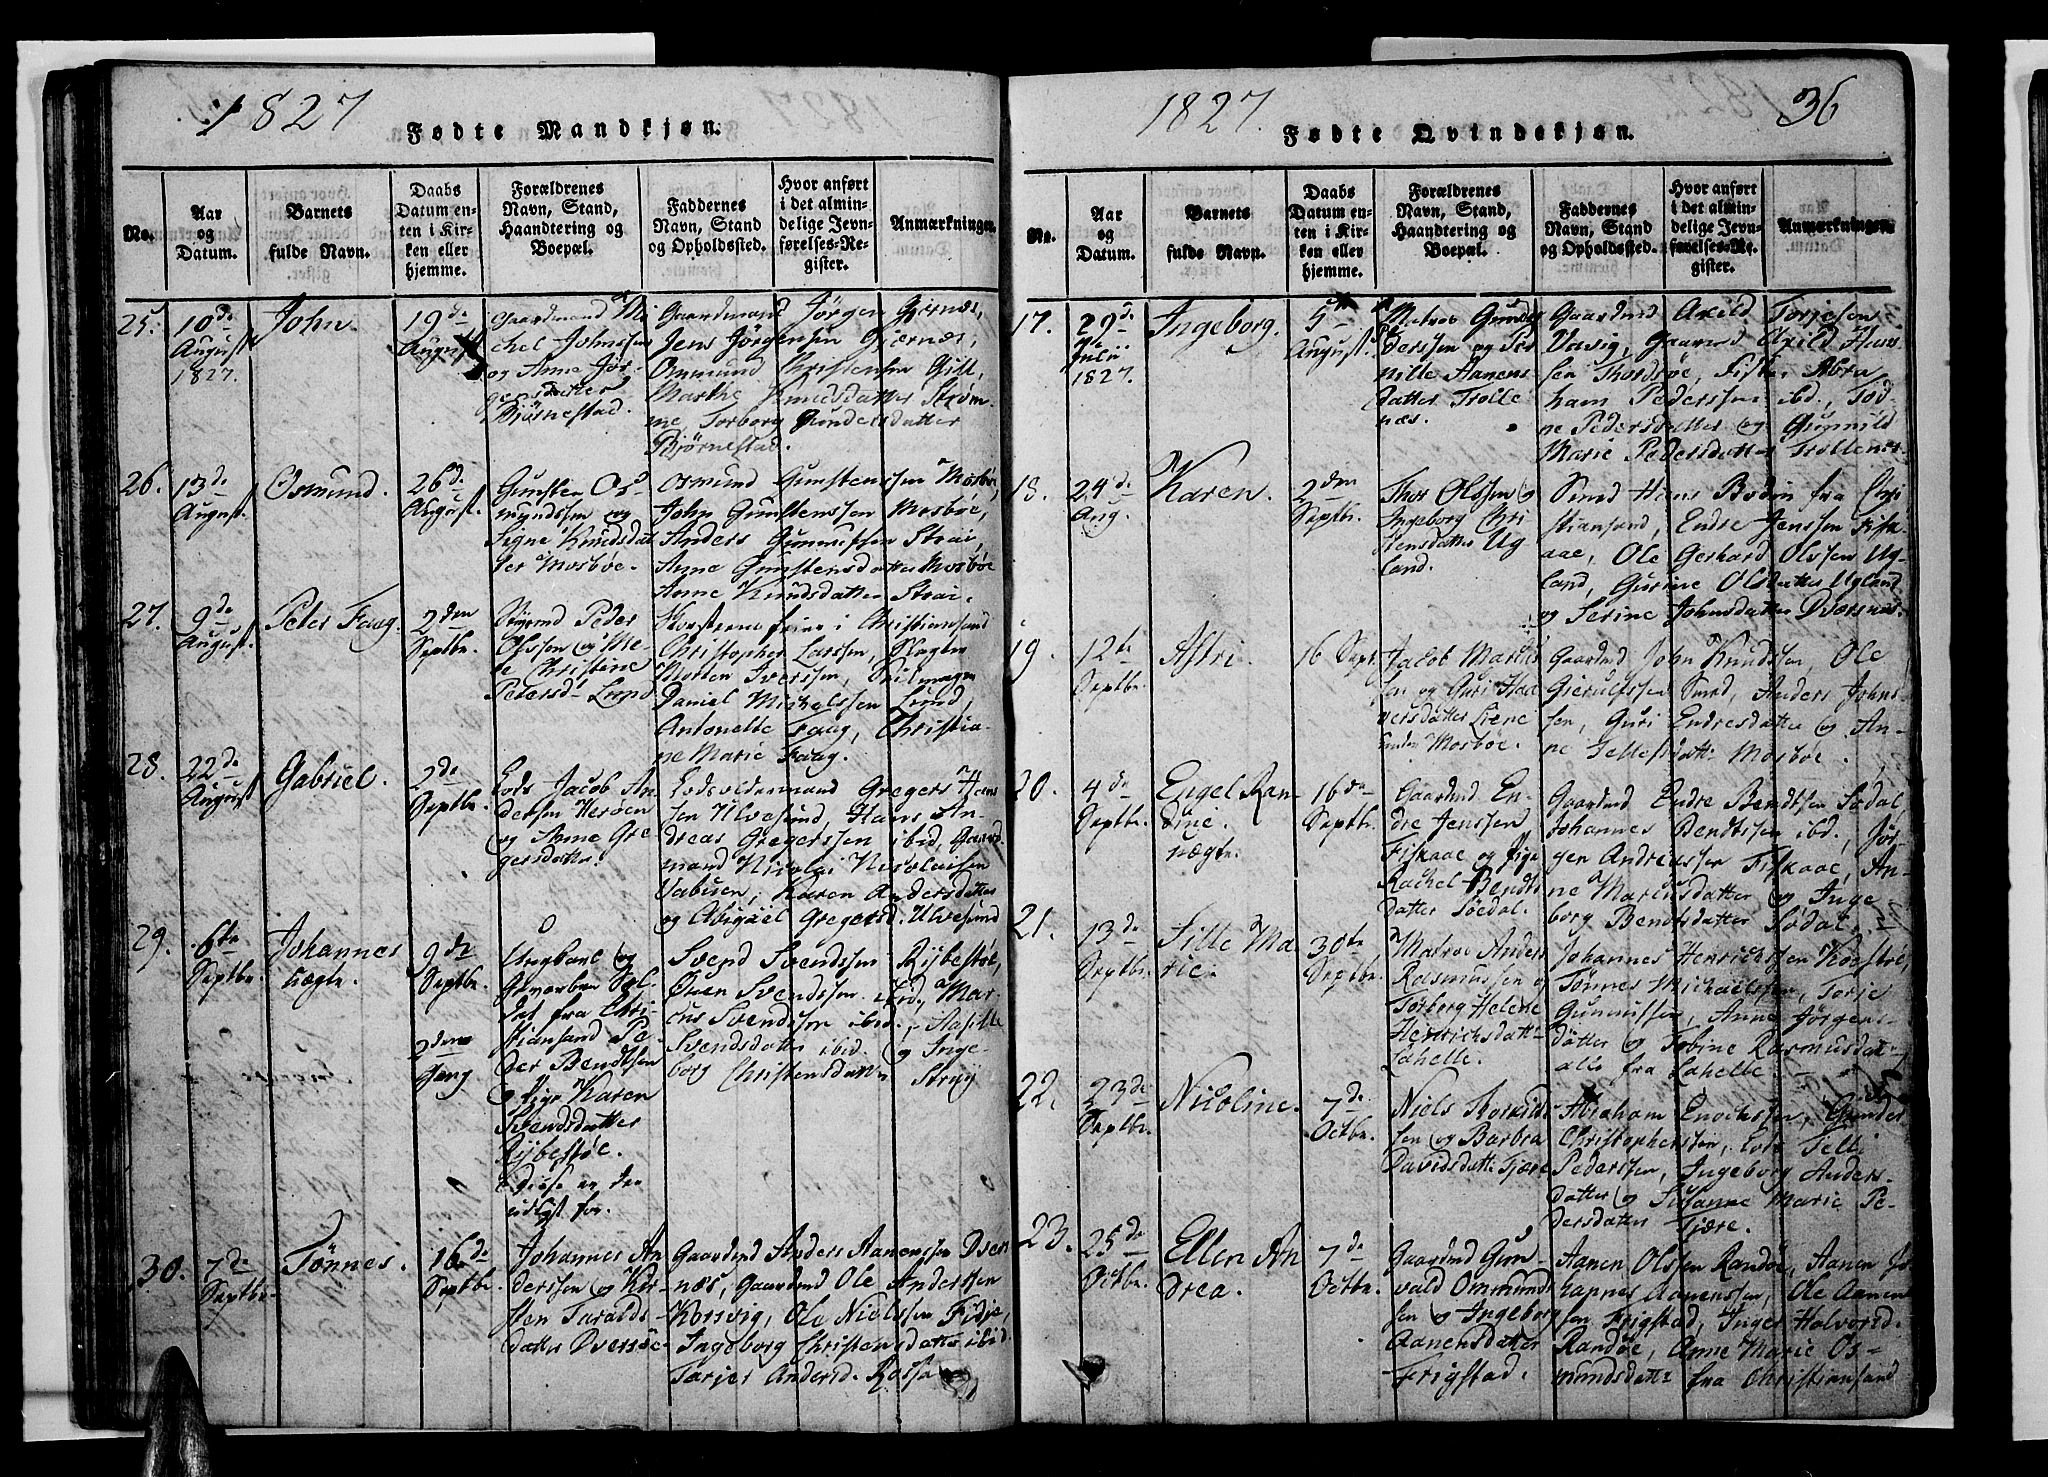 1827
Fødte Mandkjøn.
No.
Aar
og
Datum.
Barnets
fulde Navn.
Daabs
Datum en-
ten i Kir-
ken eller
hjemme.
Forældrenes
Navn, Stand,
Haandtering og
Boepæl.
Faddernes
Navn, Stand
og Opholdssted.
Hvor anført
i det almin-
delige Jevn-
førelses-Re-
gister.
Anmærkninger.
25.
10de
August
1827.
John.
19de
August
Gaardmand Mi
chel Johnssen
og Anne Jør-
gensdatter
Bjørnestad.
Gaardmand Jørgen Gjernes,
Jens Jørgensen Gjernes,
Ommund Christensen
Marthe Knudsdatter Strøm-
me, Torborg Gundersdatter
Bjørnestad.
26.
13de
August.
Osmund.
26d.
August.
Gunsten Os
mundssen og
Signe Knudsdat
ter Mosbøe.
Osmund Gunstenssen Mosbøe,
John Gunstenssen Mosbøe,
Anders Gunnufsen Strai,
Anne Gunstensdatter Mosbøe
Anne Knudsdatter Strai.
27.
9de
August.
Peter Faag.
2den
Septbr.
Peder
Olssen og
Christine
Petersd. Lund
i Christiansand
Christopher Larssen,
Morten Iverssen,
Daniel Michelssen Lund,
Antonette Faag, Christia-
ne Marie Faag.
28.
22de
August
Gabriel.
2de
Septbr.
Lods Jacob An
dersen Herøen
og Anne Gre
gersdatter.
Lodsoldermand Gregers Han
sen Ulvesund, Hans An-
dreas Gregerssen ibid, Gaard-
mand Nicolai Nicolaisen
Vabuen, Karen Andersdatter
og Abigael Gregersd. Ulvesund
29.
6te
Septbr.
Johannes
uægte.
9de
Septbr.
2den
Gang
Ungkarl og
Sol-
dat fra Chri-
stiansand Pe-
der Bendtsen
og Pige Karen
Svendsdatter
Rybestøe.
Disse er den
udlgt for.
Svend Svendssen Rybestøl,
Owen Svendssen ibid, Mar-
cus Svendssen ibid., Aasille
Svendsdatter ibid. og Inge-
borg Christensdatter Stray
30.
7de
Septbr.
Tønnes.
16de
Septbr.
Johannes An
derssen og Kir-
sten Taralds
datter Dversøe
Gaardmd Anders Aanenssen Dvers
næs, Gaardmd Ole Anderssen
Korsvig, Ole Nielssen Fidje,
Ingeborg Christensdatter ibid.
Tarjer Andersd.
1827.
36
Fødte Qvindekjøn.
No.
Aar
og
Datum.
Barnets
fulde Navn.
Daabs
Datum en-
ten i Kir-
ken eller
hjemme.
Forældrenes
Navn, Stand,
Haandtering og
Boepæl.
Faddernes
Navn, Stand
og Opholdssted.
Hvor anført
i det almin-
delige Jevn-
førelses-Re-
gister.
Anmærkninger.
17.
29de
Julii
1827.
Ingeborg.
5te
August.
Matros Gun
derssen og Per
nille Aanens
datter Trolle
næs.
Gaardmd Axild Torjesen
Vravig, Gaarmd Axild Han
sen Thordsøe, Fisker Abra
ham Pederssen ibd,
ne Pedersdatter og Gunnild
Marie Pedersdatter Trollenes
18.
24de
Aug.
Karen.
2den
Septbr.
Thor Olssen og
Ingeborg Chri
stensdatter Ug
land.
Smed Hans Bodin fra Chri
stiansand, Endre Jenssen Fisk-
aae, Ole Gerhard Olssen Ug-
land, Gurine Olsdatter Ugland
og Serine Johnsdatter Dversnes
19.
12te
Septbr.
Astri.
16 Sept.
Jacob Marcus
sen og Guri Hal
versdatter Liene
under Mosbøe.
Gaardmd John Knudssen, Ole
Gierulfssen Smed, Anders Johns
sen, Guri Endresdatter og An-
ne Tellefsdatt. Mosbøe.
20.
4de
Septbr.
Engel Ran-
dine.
uægte.
16de
Septbr.
Gaardmd En-
dre Jenssen
Fiskaae og Pige
Rachel Bendts
datter Søedal.
Gaardmd Endre Bendtsen Sødal,
Johannes Bendtssen ibid., Jør-
gen Andreassen Fiskaae, An-
ne Marcusdatter og Inge
borg Bendtsdatter Sødal.
21.
13de
Septbr.
Sille Ma
rie.
30te
Septbr.
Matros Anders
Rasmussen og
Torborg Helene
Henrichsdatt.
Lahelle.
Johannes Henrichssen
Tønnes Michaelssen, Torje
Gunnufsen, Anne Jørgens-
datter og Tobine Rasmusdat.
alle fra Lahelle.
22.
23de
Septbr.
Nicoline.
7de
Octbr.
Niels
sen og Barbra
Davidsdatt. Fjære
Abraham Enochssen, Gunder
Christophersen, Lods Telle
Pederssen, Ingeborg Anders-
datter og Susanne Marie Pe-
dersdatter Fjære.
23.
25de
Octbr.
Ellen An
drea.
7de
Octbr.
Gaardmd Gun-
vald Ommunds
sen og Ingeborg
Aanensdatter
Frigstad.
Aanen Olssen Randøe, Aanen Jo
hannes Aanenssen, Ole Aanens
sen Frigstad, Inger Halvorsd.
Randøe, Anne Marie Os-
mundsdatt. fra Christiansand